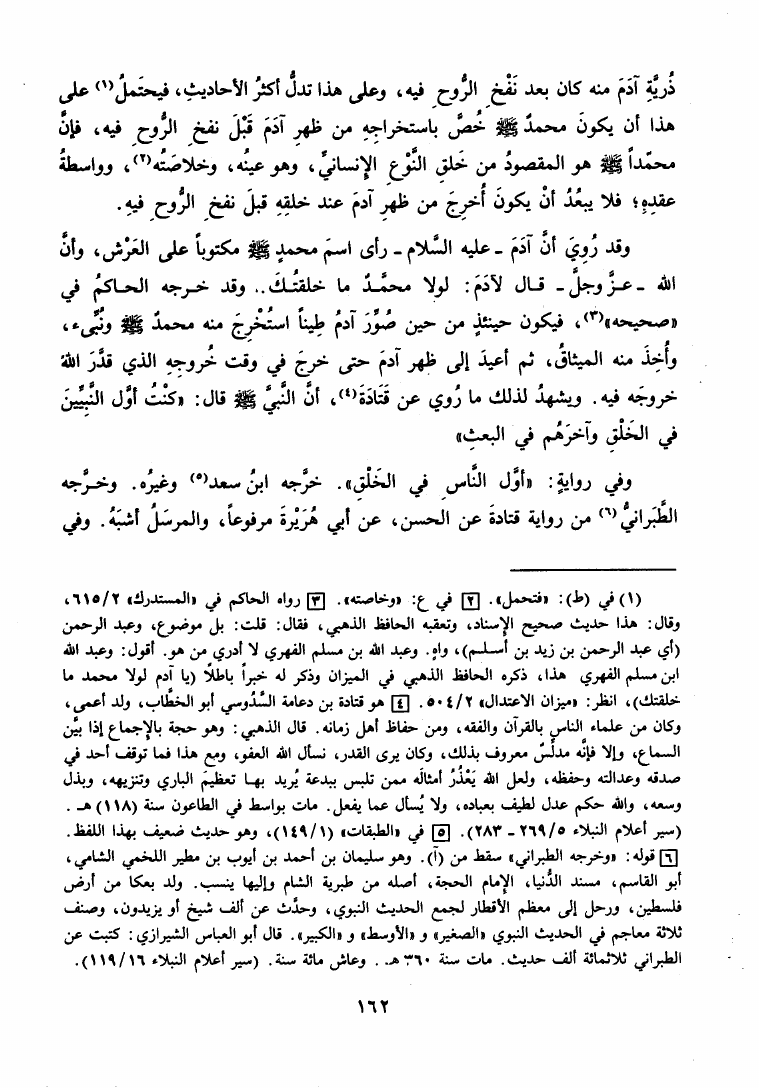 ذُرِّيَّةِ آدَمَ منه كان بعد نَفْخِ الرُّوحِ فيه، وعلى هذا تدلُّ أكثرُ الأحاديثِ، فيحتَملُ(١) على
هذا أن يكونَ محمدٌ ﷺ خُصَّ باستخراجِهِ من ظهرِ آدَمَ قَبْلَ نفخِ الرُّوحِ فيه، فإنَّ
محمّداً ﷺ هو المقصودُ من خَلقِ النَّوْعِ الإنسانيِّ، وهو عينُه، وخلاصَتُه(٢)، وواسطةُ
عقدِهِ؛ فلا يبعُدُ أنْ يكونَ أُخرِجَ من ظهرِ آدمَ عند خلقِهِ قبلَ نفخِ الرُّوحِ فيهِ.
وقد رُوِيَ أنَّ آدَمَ ـ عليه السَّلام ـ رأى اسمَ محمدٍ ﷺ مكتوباً على العَرْش، وأنَّ
الله ـ عـزَّ وجلَّ ـ قـال لآدَمَ: لولا محمَّـدٌ ما خلقتُـكَ.. وقد خـرجه الحـاكمُ في
«صحيحه»(٣)، فيكون حينئذٍ من حين صُوِّرَ آدمُ طِيناً اسْتُخْرِجَ منه محمدٌ ﷺ ونُبِّىء،
وأُخِذَ منه الميثاقُ، ثم أعيدَ إلى ظهر آدمَ حتى خرجَ في وقت خُروجِهِ الذي قدَّرَ اللهُ
خروجَه فيه. ويشهدُ لذلك ما رُوي عن قَتَادَةَ(٤)، أن النَّبيَّ ﷺ قال: «كنْتُ أوَّل النَّبِيِّينَ
في الخَلْقِ وآخرَهُم في البعثِ»
وفي روايةٍ: «أوَّل النَّاسِ في الخَلْقِ». خرَّجه ابنُ سعد(٥) وغيرُه. وخـرَّجه
الطَّبَرانيُّ(٦) من رواية قتادةَ عن الحسن، عن أبي هُرَيْرةَ مرفوعاً، والمرسَلُ أشبَهُ. وفي
(١) في (ط): «فتحمل». ٢ في ع: «وخاصته». ٣ رواه الحاكم في «المستدرك» ٦١٥/٢،
وقال: هذا حديث صحيح الإسناد، وتعقبه الحافظ الذهبي، فقال: قلت: بل موضوع، وعبد الرحمن
(أي عبد الرحمن بن زيد بن أسـلـم)، واهٍ. وعبد الله بن مسلم الفهري لا أدري من هو. أقول: وعبد الله
ابن مسلم الفهري هذا، ذكره الحافظ الذهبي في الميزان وذكر له خبراً باطلًا (يا آدم لولا محمد ما
خلقتك)، انظر: «ميزان الاعتدال» ٥٠٤/٢. ٤ هو قتادة بن دعامة السَّدُوسي أبو الخطَّاب، ولد أعمى،
وكان من علماء الناس بالقرآن والفقه، ومن حفاظ أهل زمانه. قال الذهبي: وهو حجة بالإجماع إذا بيَّن
السماع، وإلا فإنَّه مدلّسٌ معروف بذلك، وكان يرى القدر، نسأل الله العفو، ومع هذا فما توقف أحد في
صدقه وعدالته وحفظه، ولعل الله يَعْذُرُ أمثالَه ممن تلبس ببدعة يُريد بهـا تعظيمَ الباري وتنزيهه، وبذل
وسعه، والله حكم عدل لطيف بعباده، ولا يُسأل عما يفعل. مات بواسط في الطاعون سنة (١١٨) هـ.
(سير أعلام النبلاء ٢٦٩/٥ ـ ٢٨٣). ٥ في «الطبقات» (١٤٩/١)، وهو حديث ضعيف بهذا اللفظ.
٦ قوله: «وخرجه الطبراني» سقط من (آ). وهو سليمان بن أحمد بن أيوب بن مطير اللخمي الشامي،
أبو القاسم، مسند الدُّنيا، الإمام الحجة، أصله من طبرية الشام وإليها ينسب. ولد بعكا من أرض
فلسطين، ورحل إلى معظم الأقطار لجمع الحديث النبوي، وحدَّث عن ألف شيخ أو يزيدون، وصنف
ثلاثة معاجم في الحديث النبوي «الصغير» و «الأوسط» و «الكبير». قال أبو العباس الشيرازي: كتبت عن
الطبراني ثلاثمائة ألف حديث. مات سنة ٣٦٠ هـ. وعاش مائة سنة. (سير أعلام النبلاء ١١٩/١٦).
١٦٢